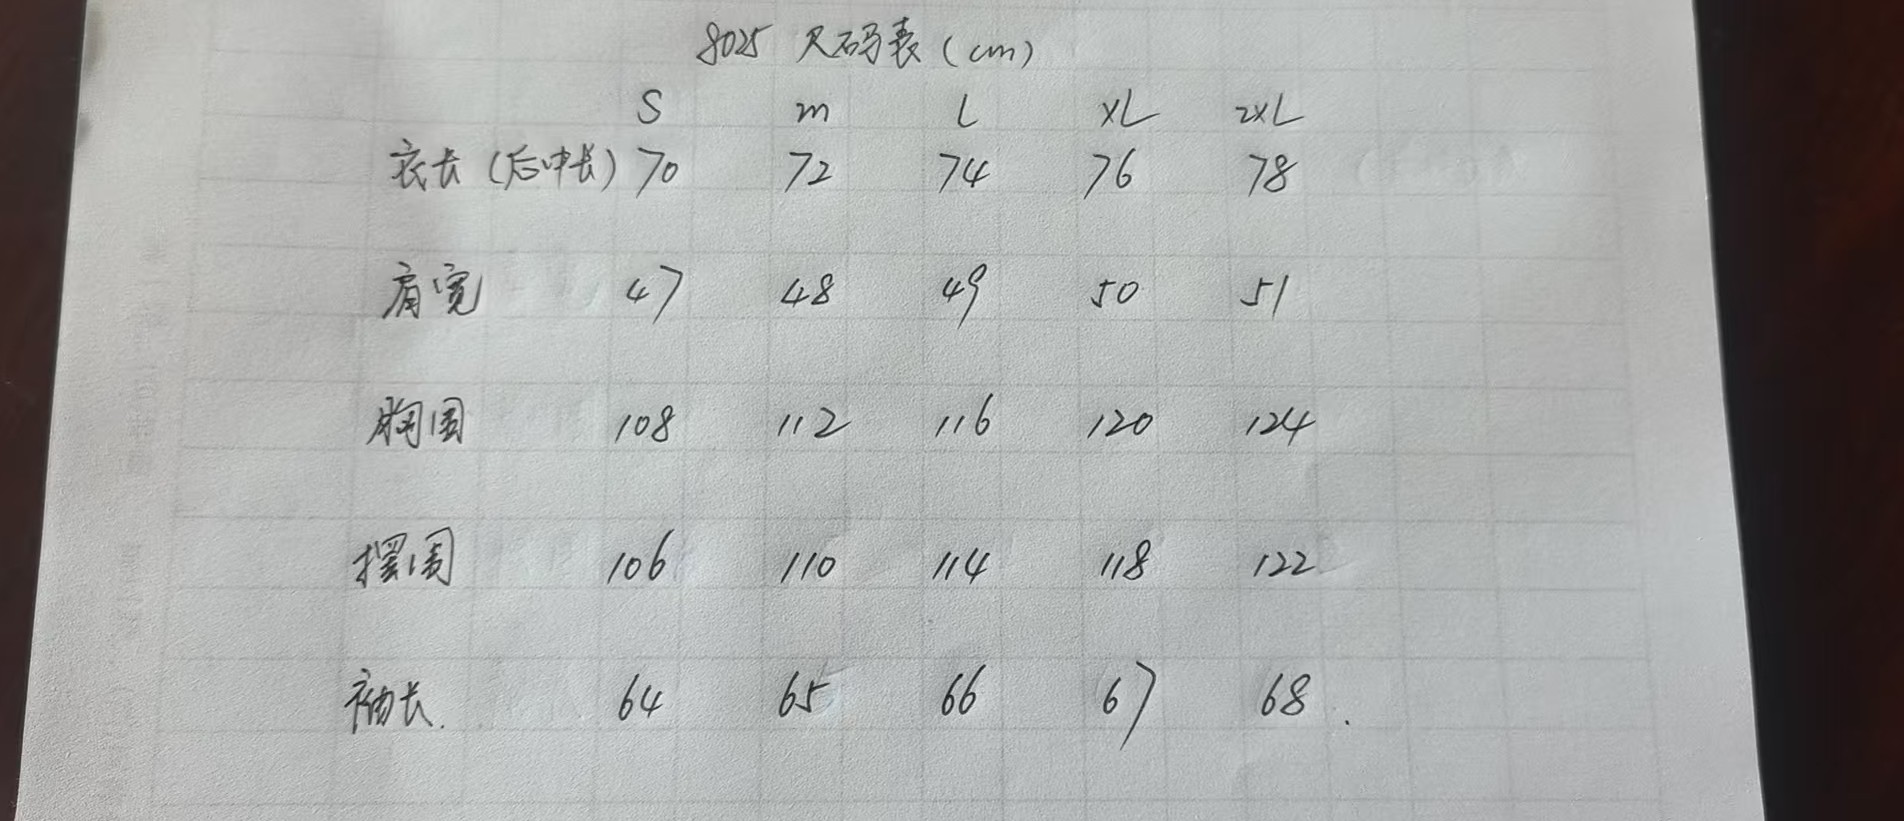 8025 尺码表 (cm)
S m L XL 2XL
衣长 (后中长) 70 72 74 76 78
肩宽 47 48 49 50 51
胸围 108 112 116 120 124
摆围 106 110 114 118 122
袖长. 64 65 66 67 68.